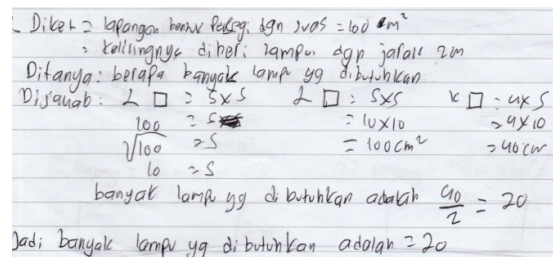 Diket = lapangan bentuk persegi dgn luas = 100 m²
= kelilingnya diberi lampu dgn jarak 2m
Ditanya : berapa banyak lampu yg dibutuhkan
Dijawab : L □ = S×S L □ : S×S K □ : 4×S
100 = S = 10×10 = 4×10
√100 = S = 100cm² = 40cm
10 = S
banyak lampu yg dibutuhkan adalah 40/2 = 20
Jadi banyak lampu yg dibutuhkan adalah = 20